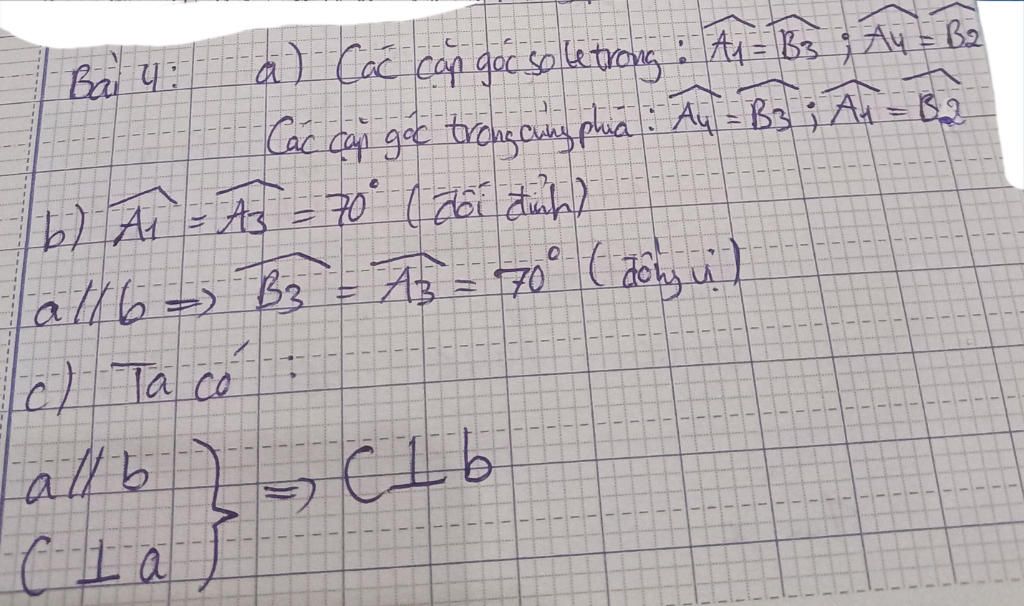 Bài 4: a) Các cặp góc so le trong: A1 = B3 ; A4 = B2
Các cặp góc trong cùng phía: A4 = B3 ; A1 = B2
b) A1 = A3 = 70° (đối đỉnh)
a // b => B3 = A3 = 70° (đồng vị)
c) Ta có :
a // b } => C ⊥ b
C ⊥ a